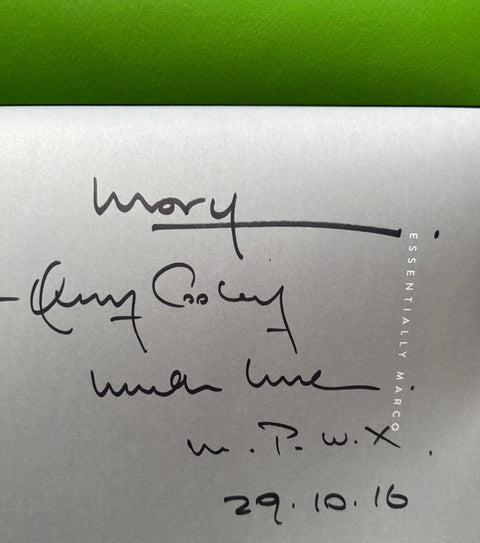 Mary.
- Enjoy Cooking
much love.
M.P.W.X.
29.10.16
ESSENTIALLY MARCO